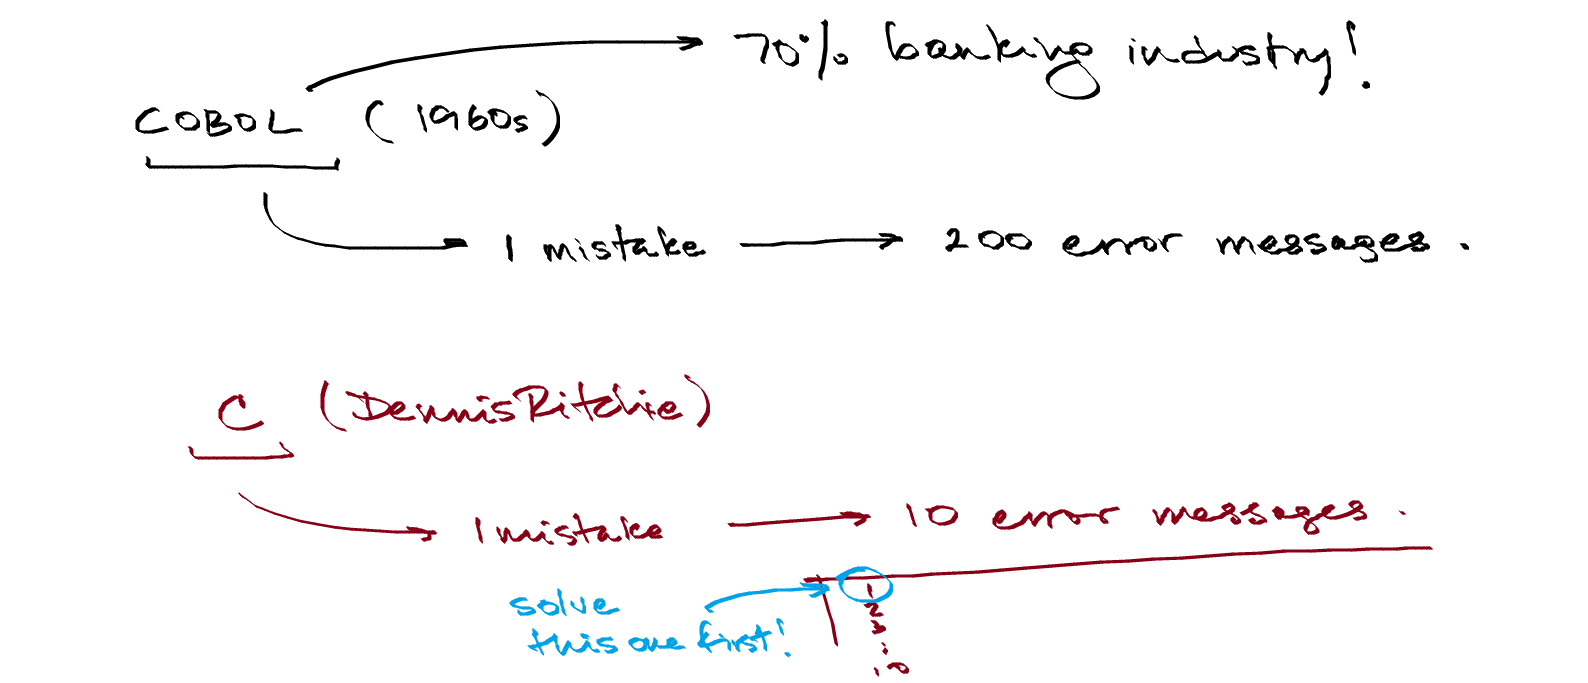 70% banking industry!
COBOL (1960s)
1 mistake 200 error messages.
C (Dennis Ritchie)
1 mistake 10 error messages.
solve
this one first!
1
2
3
:
10